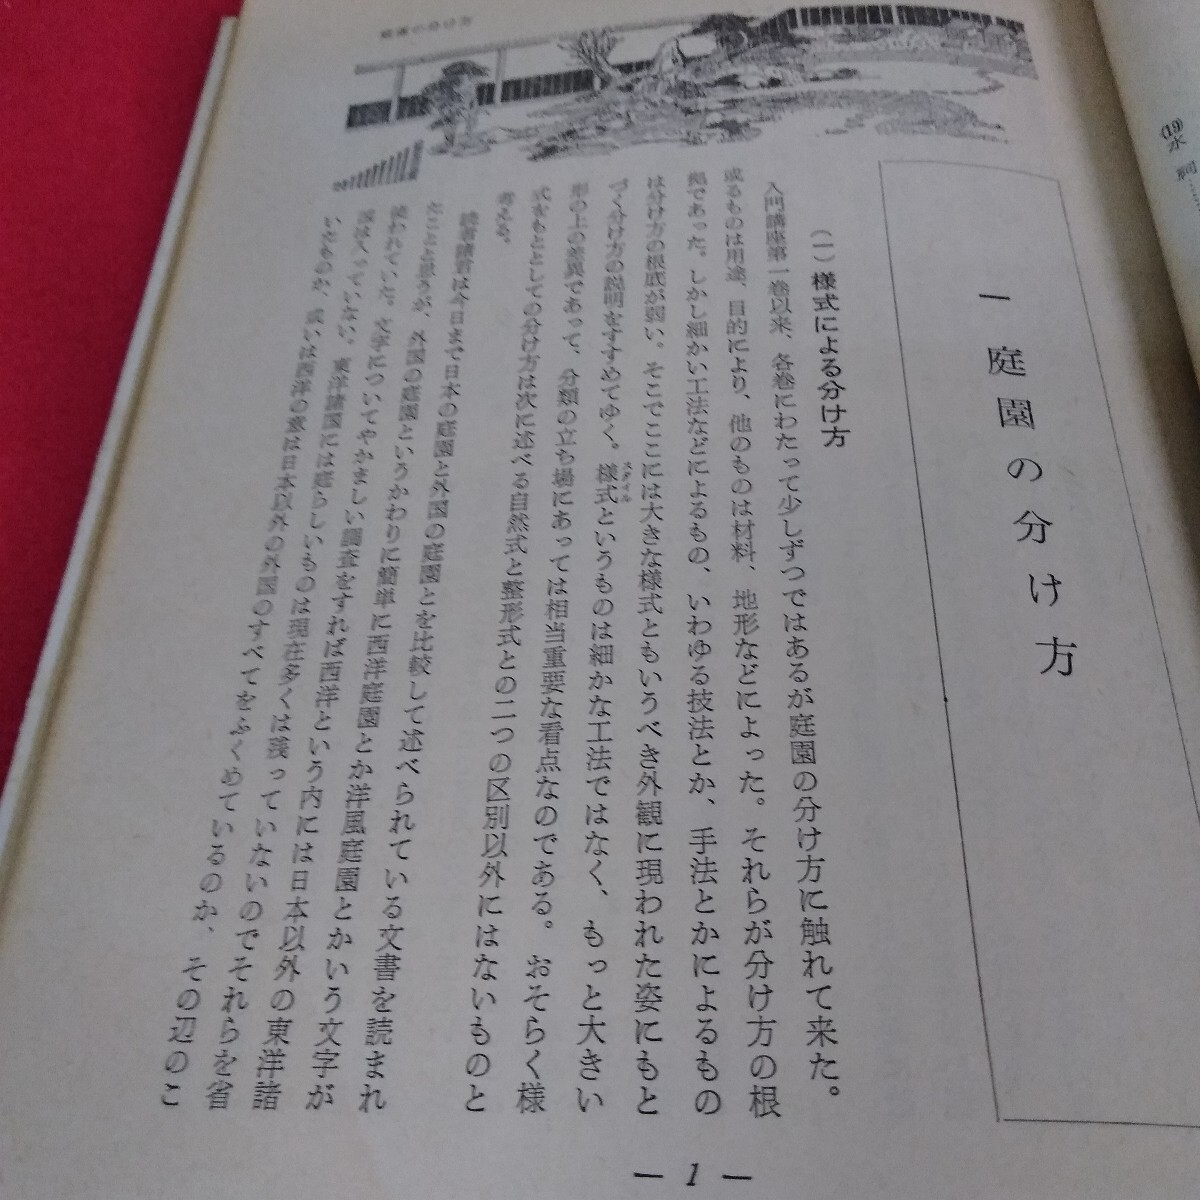 庭園の分け方
(19)水
一 庭園の分け方
(一) 様式による分け方
入門講座第一巻以来、各巻にわたって少しずつではあるが庭園の分け方に触れて来た。
或るものは用途、目的により、他のものは材料、地形などによった。それらが分け方の根
拠であった。しかし細かい工法などによるもの、いわゆる技法とか、手法とかによるもの
は分け方の根底が弱い。そこでここには大きな様式ともいうべき外観に現われた姿にもと
づく分け方の説明をすすめてゆく。様式というものは細かな工法ではなく、もっと大きい
スタイル
形の上の差異であって、分類の立ち場にあっては相当重要な看点なのである。おそらく様
式をもととしての分け方は次に述べる自然式と整形式との二つの区別以外にはないものと
考える。
読者諸君は今日まで日本の庭園と外国の庭園とを比較して述べられている文書を読まれ
たことと思うが、外国の庭園というかわりに簡単に西洋庭園とか洋風庭園とかいう文字が
使われていた。文字についてやかましい調査をすれば西洋という内には日本以外の東洋諸
国は入っていない。東洋諸国には庭らしいものは現在多くは残っていないのでそれらを省
いたものか、或いは西洋の意は日本以外の外国のすべてをふくめているのか、その辺のこ
— 1 —